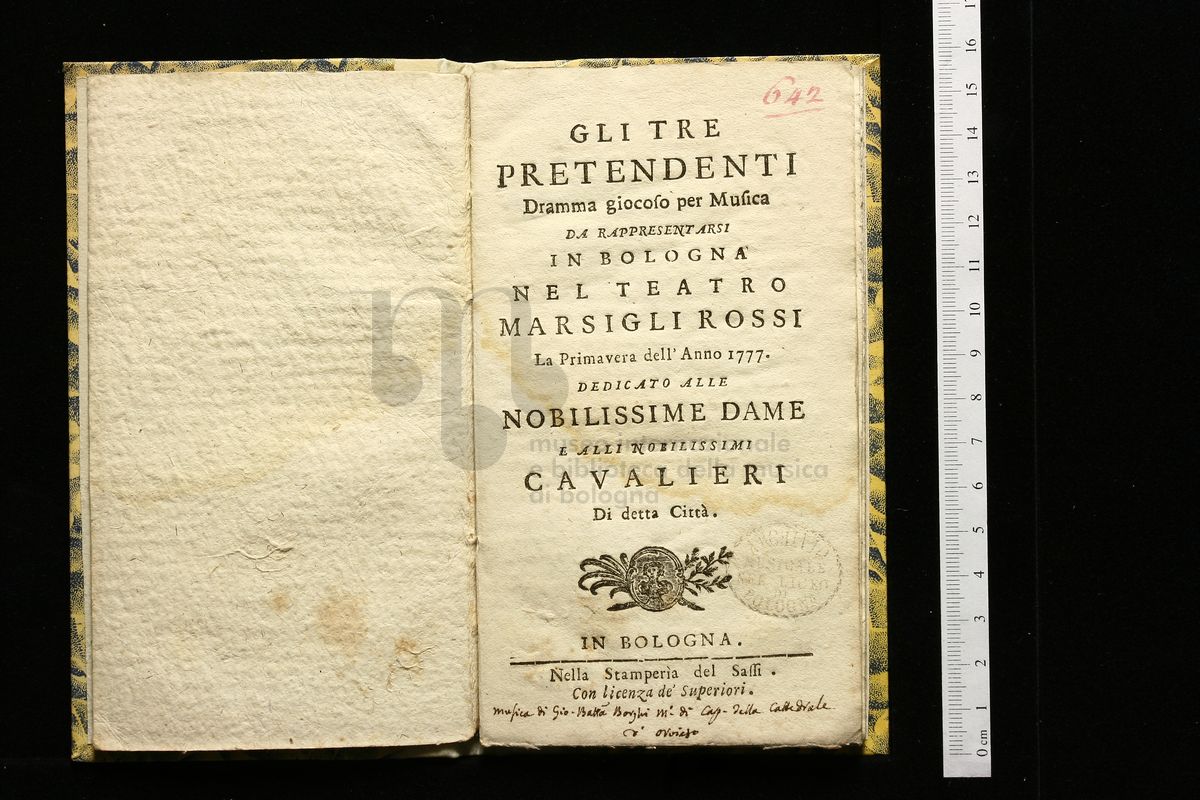 642
GLI TRE
PRETENDENTI
Dramma giocoſo per Muſica
DA RAPPRESENTARSI
IN BOLOGNA
NEL TEATRO
MARSIGLI ROSSI
La Primavera dell' Anno 1777.
DEDICATO ALLE
NOBILISSIME DAME
E ALLI NOBILISSIMI
CAVALIERI
Di detta Città.
IN BOLOGNA.
Nella Stamperìa del Saſſi.
Con licenza de' Superiori.
Musica di Gio. Batta Borghi M.º di Cap. della Cattedrale
d' Orvieto
museo internazionale
e biblioteca della musica
di bologna
17
16
15
14
13
12
11
10
9
8
7
6
5
4
3
2
1
0 cm